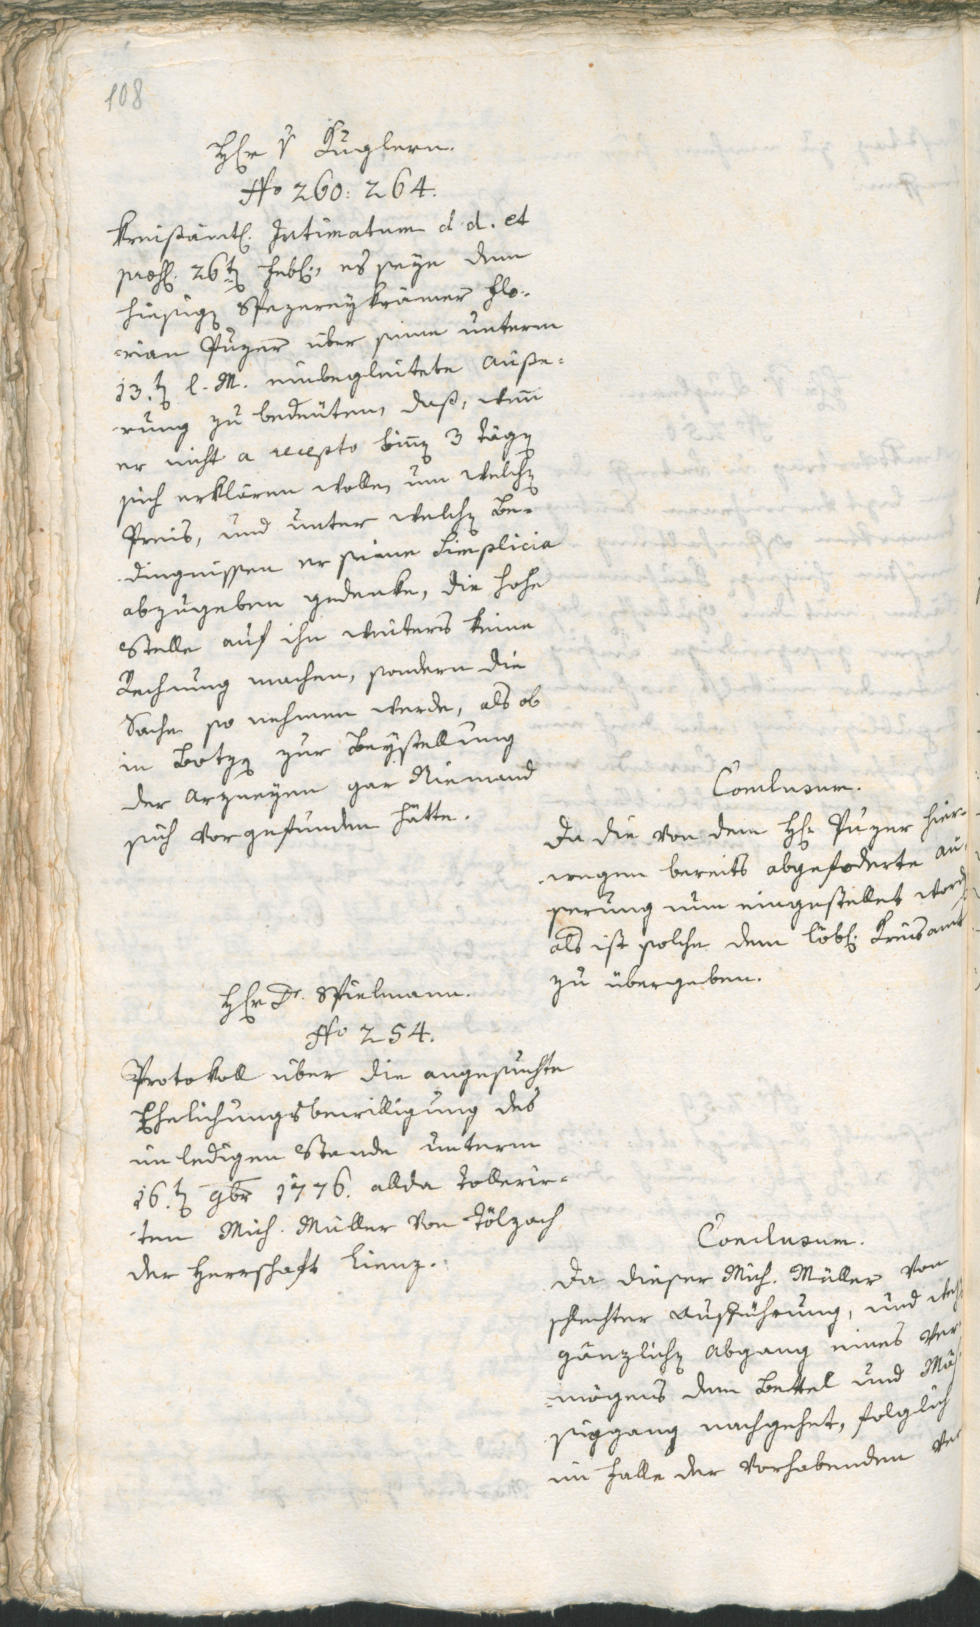 108
H̃ħr v Kuglern.
No 260: 264.
Kreißämtl: Intimatum d. d. et
præs: 26tẽ Febr:, es seye dem
hiesigẽ Spezereykrämer Flo-
-rian Puzer über seine unterm
13.tẽ l. M. einbegleitete Äuße-
-rung zu bedeuten, daß, wenn
er nicht a recepto binẽ 3 Tägẽ
sich erklären wolle, um welchẽ
Preis, und unter welchẽ Be-
dingnissen er seine Simplicia
abzugeben gedenke, die hohe
Stelle auf ihn weiters keine
Rechnung machen, sondern die
Sache so nehmen werde, als ob
in Botzẽ zur Beystellung
der Arzneyen gar Niemand
sich vorgefunden hätte.
Conclusum.
Da die von dem H̃: Puzer hier-
-wegen bereits abgefoderte Äu-
serung nun eingestellet word
als ist solche dem löbl: Kreisamt
zu übergeben.
Hr Dr. Spielmann.
No 254.
Protokoll über die angesuchte
Ehelichungsbewilligung des
im ledigen Stande unterm
16.tẽ 9br 1776. allda tollerir-
-ten Mich. Müller von Tölzach
der Herrschaft Lienz.
Conclusum.
Da dieser Mich. Müller von
schlechter Aufführung, und
gänzlichẽ Abgang eines Ver
-mögens dem Bettel und Mü
siggang nachgehet, folglich
im Falle der vorhabenden Ver